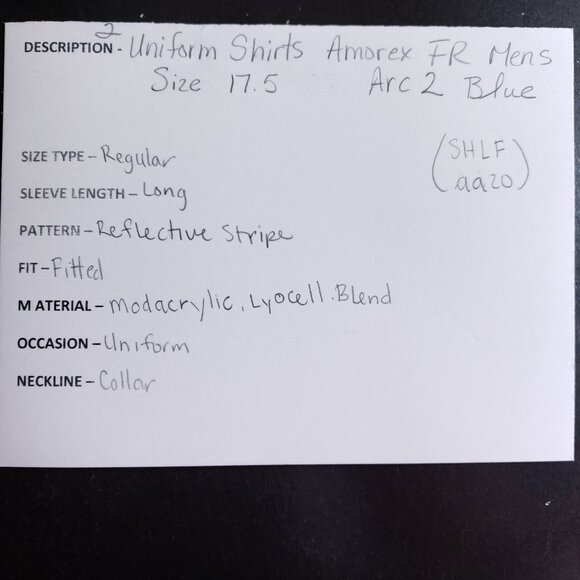 DESCRIPTION - 2 Uniform Shirts Amorex FR Mens
Size 17.5 Arc 2 Blue
SIZE TYPE - Regular
(SHLF
aa20)
SLEEVE LENGTH - Long
PATTERN - Reflective Stripe
FIT - Fitted
MATERIAL - Modacrylic, Lyocell. Blend
OCCASION - Uniform
NECKLINE - Collar